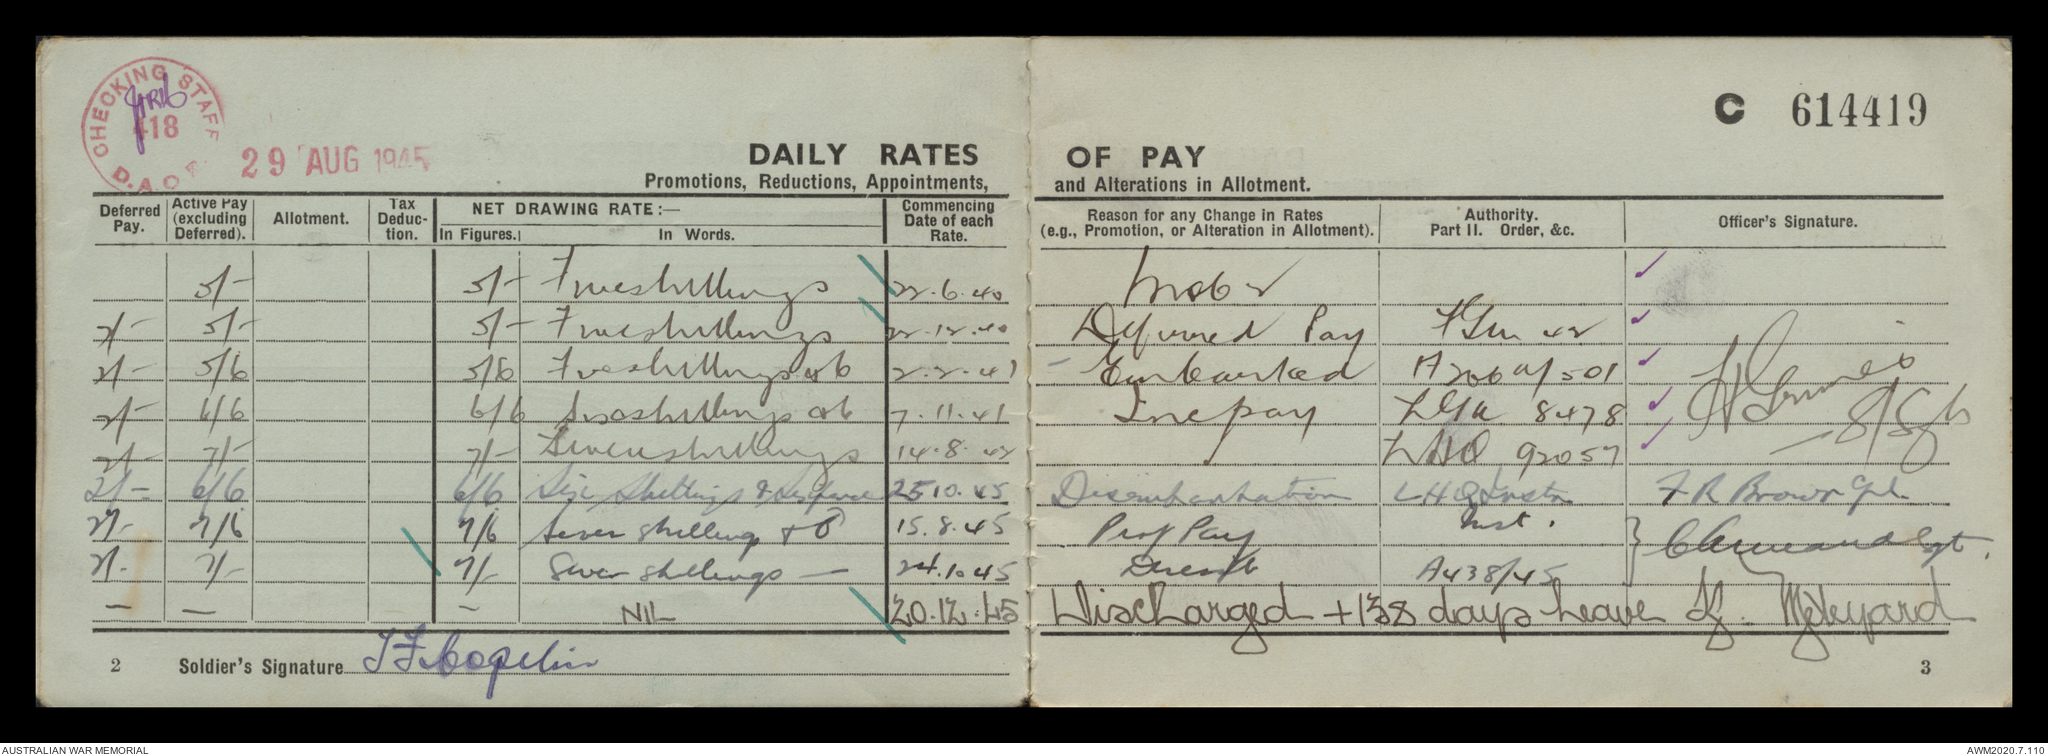 CHECKING STAFF
418
D.A.O.
29 AUG 1945
C 614419
DAILY RATES OF PAY
Promotions, Reductions, Appointments, and Alterations in Allotment.
Deferred Pay. Active Pay (excluding Deferred). Allotment. Tax Deduction. NET DRAWING RATE:— In Figures. In Words. Commencing Date of each Rate. Reason for any Change in Rates (e.g., Promotion, or Alteration in Allotment). Authority. Part II. Order, &c. Officer's Signature.
5/- 5/- Five shillings 22.6.40
2/- 5/- 5/- Five shillings 22.12.40 Deferred Pay
2/- 5/6 5/6 Five shillings & 6 2.2.41 Embarked
2/- 6/6 6/6 Six shillings & 6 7.11.41 Inc pay 8478
2/- 7/- 7/- Seven shillings 14.8.42 92057
2/- 6/6 6/6 Six Shillings & Sixpence 25 10.45 Disembarkation LHQ Instn F R Brown
2/- 7/6 7/6 Seven shillings & 6 15.8.45 Prof Pay Inst.
2/- 7/- 7/- Seven shillings — 24.10.45 A438/45
— — — NIL 20.12.45 Discharged + 138 days Leave Meteyard
2 Soldier's Signature 3
AUSTRALIAN WAR MEMORIAL AWM2020.7.110